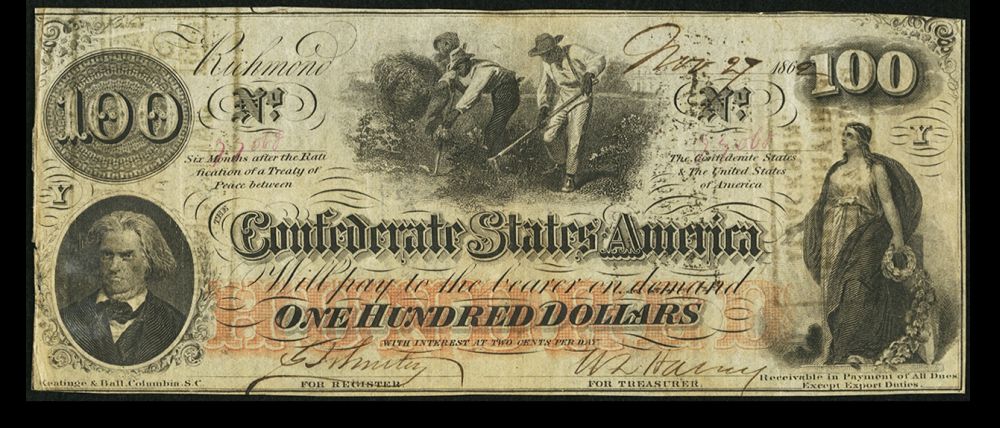 Richmond
Nov. 27 1862
100
100
No.
No.
Six Months after the Rati
fication of a Treaty of
Peace between
The Confederate States
& The United States
of America
Y
Y
THE
Confederate States of America
Will pay to the bearer on demand
ONE HUNDRED DOLLARS
WITH INTEREST AT TWO CENTS PER DAY
FOR REGISTER
FOR TREASURER.
Keatinge & Ball, Columbia, S.C.
Receivable in Payment of All Dues
Except Export Duties.